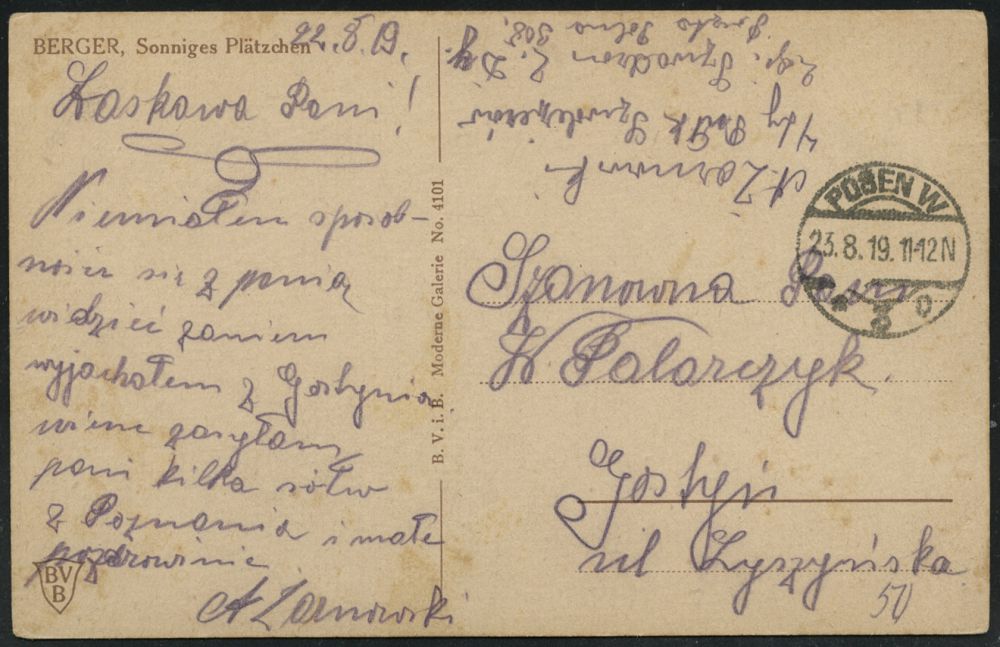 BERGER, Sonniges Plätzchen
22.8.19.
Łaskawa Pani!
Niemiałem sposob-
ności się z panią
widzieć zaniem
wyjachałem z Gostynia
wienc zasyłam
pani kilka słuw
z Poznania i małe
pozdrowinie
A Zarnowski
BVB
B. V. i. B. Moderne Galerie No. 4101
1/ty Pułk
Szwadron 2.
Poczta Polna
POSEN W
23.8.19. 11-12N
* 3 c
Szanowna Pani
W. Palarczyk.
Gostyń
ul Zyszyńska
50